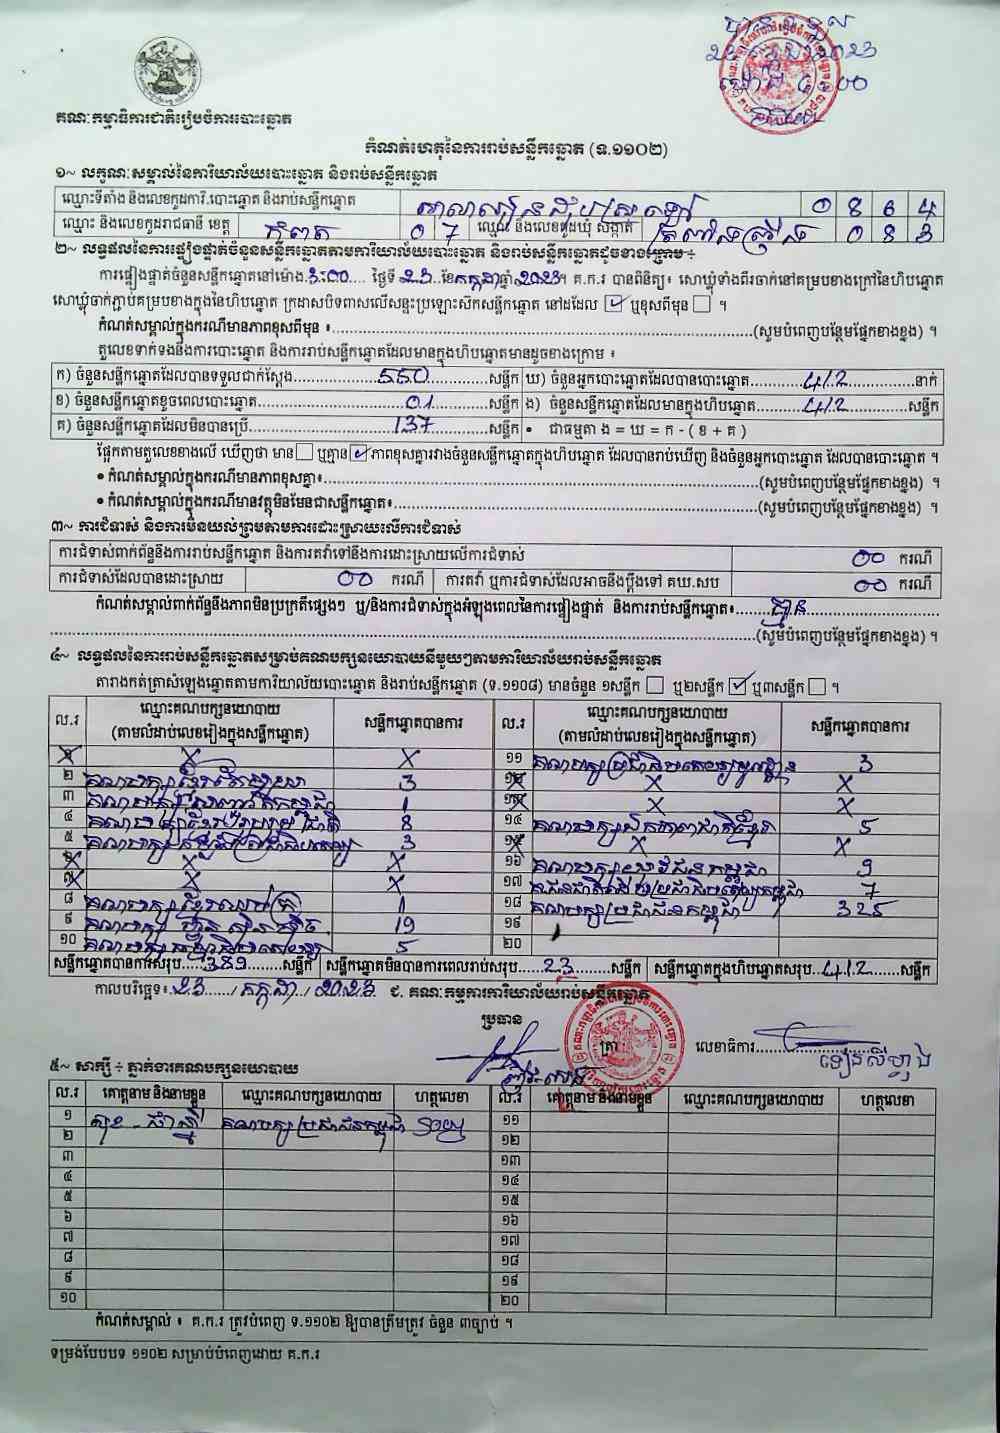 គណៈកម្មាធិការជាតិរៀបចំការបោះឆ្នោត
កំណត់ហេតុនៃការរាប់សន្លឹកឆ្នោត (ទ.១១០២)
១~ លក្ខណៈសម្គាល់នៃការិយាល័យបោះឆ្នោត និងរាប់សន្លឹកឆ្នោត
ឈ្មោះទីតាំង និងលេខកូដការិ.បោះឆ្នោត និងរាប់សន្លឹកឆ្នោត
ឈ្មោះ និងលេខកូដរាជធានី ខេត្ត កំពត 0 7 ឈ្មោះ និងលេខកូដឃុំ សង្កាត់
២~ លទ្ធផលនៃការផ្ទៀងផ្ទាត់ចំនួនសន្លឹកឆ្នោតតាមការិយាល័យបោះឆ្នោត និងរាប់សន្លឹកឆ្នោតដូចខាងក្រោម ÷
ការផ្ទៀងផ្ទាត់ចំនួនសន្លឹកឆ្នោតនៅម៉ោង 3:00 ថ្ងៃទី 23 ខែ កក្កដា ឆ្នាំ 2023 ។ គ.ក.រ បានពិនិត្យ៖ សោឃ្លុំទាំងពីរចាក់នៅគម្របខាងក្រៅនៃហិបឆ្នោត
សោឃ្លុំចាក់ភ្ជាប់គម្របខាងក្នុងនៃហិបឆ្នោត ក្រដាសបិទពាសលើសន្ទះប្រឡោះស៊កសន្លឹកឆ្នោត នៅដដែល ☑ ឬខុសពីមុន ☐ ។
កំណត់សម្គាល់ក្នុងករណីមានភាពខុសពីមុន ៖ (សូមបំពេញបន្ថែមផ្នែកខាងខ្នង) ។
តួលេខទាក់ទងនឹងការបោះឆ្នោត និងការរាប់សន្លឹកឆ្នោតដែលមានក្នុងហិបឆ្នោតមានដូចខាងក្រោម ៖
ក) ចំនួនសន្លឹកឆ្នោតដែលបានទទួលជាក់ស្តែង 550 សន្លឹក ឃ) ចំនួនអ្នកបោះឆ្នោតដែលបានបោះឆ្នោត 412 នាក់
ខ) ចំនួនសន្លឹកឆ្នោតខូចពេលបោះឆ្នោត 01 សន្លឹក ង) ចំនួនសន្លឹកឆ្នោតដែលមានក្នុងហិបឆ្នោត 412 សន្លឹក
គ) ចំនួនសន្លឹកឆ្នោតដែលមិនបានប្រើ 137 សន្លឹក • ជាធម្មតា ង = ឃ = ក - ( ខ + គ )
ផ្អែកតាមតួលេខខាងលើ ឃើញថា មាន ☐ ឬគ្មាន ☑ ភាពខុសគ្នារវាងចំនួនសន្លឹកឆ្នោតក្នុងហិបឆ្នោត ដែលបានរាប់ឃើញ និងចំនួនអ្នកបោះឆ្នោត ដែលបានបោះឆ្នោត ។
• កំណត់សម្គាល់ក្នុងករណីមានភាពខុសគ្នា៖ (សូមបំពេញបន្ថែមផ្នែកខាងខ្នង) ។
• កំណត់សម្គាល់ក្នុងករណីមានវត្ថុមិនមែនជាសន្លឹកឆ្នោត៖ (សូមបំពេញបន្ថែមផ្នែកខាងខ្នង) ។
៣~ ការជំទាស់ និងការមិនយល់ព្រមតាមការដោះស្រាយលើការជំទាស់
ការជំទាស់ពាក់ព័ន្ធនឹងការរាប់សន្លឹកឆ្នោត និងការតវ៉ាទៅនឹងការដោះស្រាយលើការជំទាស់ 00 ករណី
ការជំទាស់ដែលបានដោះស្រាយ 00 ករណី ការតវ៉ា ឬការជំទាស់ដែលអាចនឹងប្តឹងទៅ គឃ.សប 00 ករណី
កំណត់សម្គាល់ពាក់ព័ន្ធនឹងភាពមិនប្រក្រតីផ្សេងៗ ឬ/និងការជំទាស់ក្នុងអំឡុងពេលនៃការផ្ទៀងផ្ទាត់ និងការរាប់សន្លឹកឆ្នោត៖ គ្មាន
(សូមបំពេញបន្ថែមផ្នែកខាងខ្នង) ។
៤~ លទ្ធផលនៃការរាប់សន្លឹកឆ្នោតសម្រាប់គណបក្សនយោបាយនីមួយៗតាមការិយាល័យរាប់សន្លឹកឆ្នោត
តារាងកត់ត្រាសំឡេងឆ្នោតតាមការិយាល័យបោះឆ្នោត និងរាប់សន្លឹកឆ្នោត (ទ.១១០៨) មានចំនួន ១សន្លឹក ☐ ឬ២សន្លឹក ☑ ឬ៣សន្លឹក ☐ ។
ល.រ ឈ្មោះគណបក្សនយោបាយ (តាមលំដាប់លេខរៀងក្នុងសន្លឹកឆ្នោត) សន្លឹកឆ្នោតបានការ ល.រ ឈ្មោះគណបក្សនយោបាយ (តាមលំដាប់លេខរៀងក្នុងសន្លឹកឆ្នោត) សន្លឹកឆ្នោតបានការ
១ X X ១១ 3
២ 3 ១២ X X
៣ 1 ១៣ X X
៤ 8 ១៤ 5
៥ 3 ១៥ X X
៦ X X ១៦ គណបក្សយុវជនកម្ពុជា 9
៧ X X ១៧ 7
៨ 1 ១៨ គណបក្សប្រជាជនកម្ពុជា 325
៩ គណបក្ស ហ្វ៊ុនស៊ិនប៉ិច 19 ១៩
១០ 5 ២០
សន្លឹកឆ្នោតបានការសរុប 389 សន្លឹក សន្លឹកឆ្នោតមិនបានការពេលរាប់សរុប 23 សន្លឹក សន្លឹកឆ្នោតក្នុងហិបឆ្នោតសរុប 412 សន្លឹក
កាលបរិច្ឆេទ៖ 23 / កក្កដា / 2023 ជ. គណៈកម្មការការិយាល័យរាប់សន្លឹកឆ្នោត
ប្រធាន
ត្រា លេខាធិការ
៥~ សាក្សី ÷ ភ្នាក់ងារគណបក្សនយោបាយ
ល.រ គោត្តនាម និងនាមខ្លួន ឈ្មោះគណបក្សនយោបាយ ហត្ថលេខា ល.រ គោត្តនាម និងនាមខ្លួន ឈ្មោះគណបក្សនយោបាយ ហត្ថលេខា
១ គណបក្សប្រជាជនកម្ពុជា ១១
២ ១២
៣ ១៣
៤ ១៤
៥ ១៥
៦ ១៦
៧ ១៧
៨ ១៨
៩ ១៩
១០ ២០
កំណត់សម្គាល់ ៖ គ.ក.រ ត្រូវបំពេញ ទ.១១០២ ឱ្យបានត្រឹមត្រូវ ចំនួន ៣ច្បាប់ ។
ទម្រង់បែបបទ ១១០២ សម្រាប់បំពេញដោយ គ.ក.រ